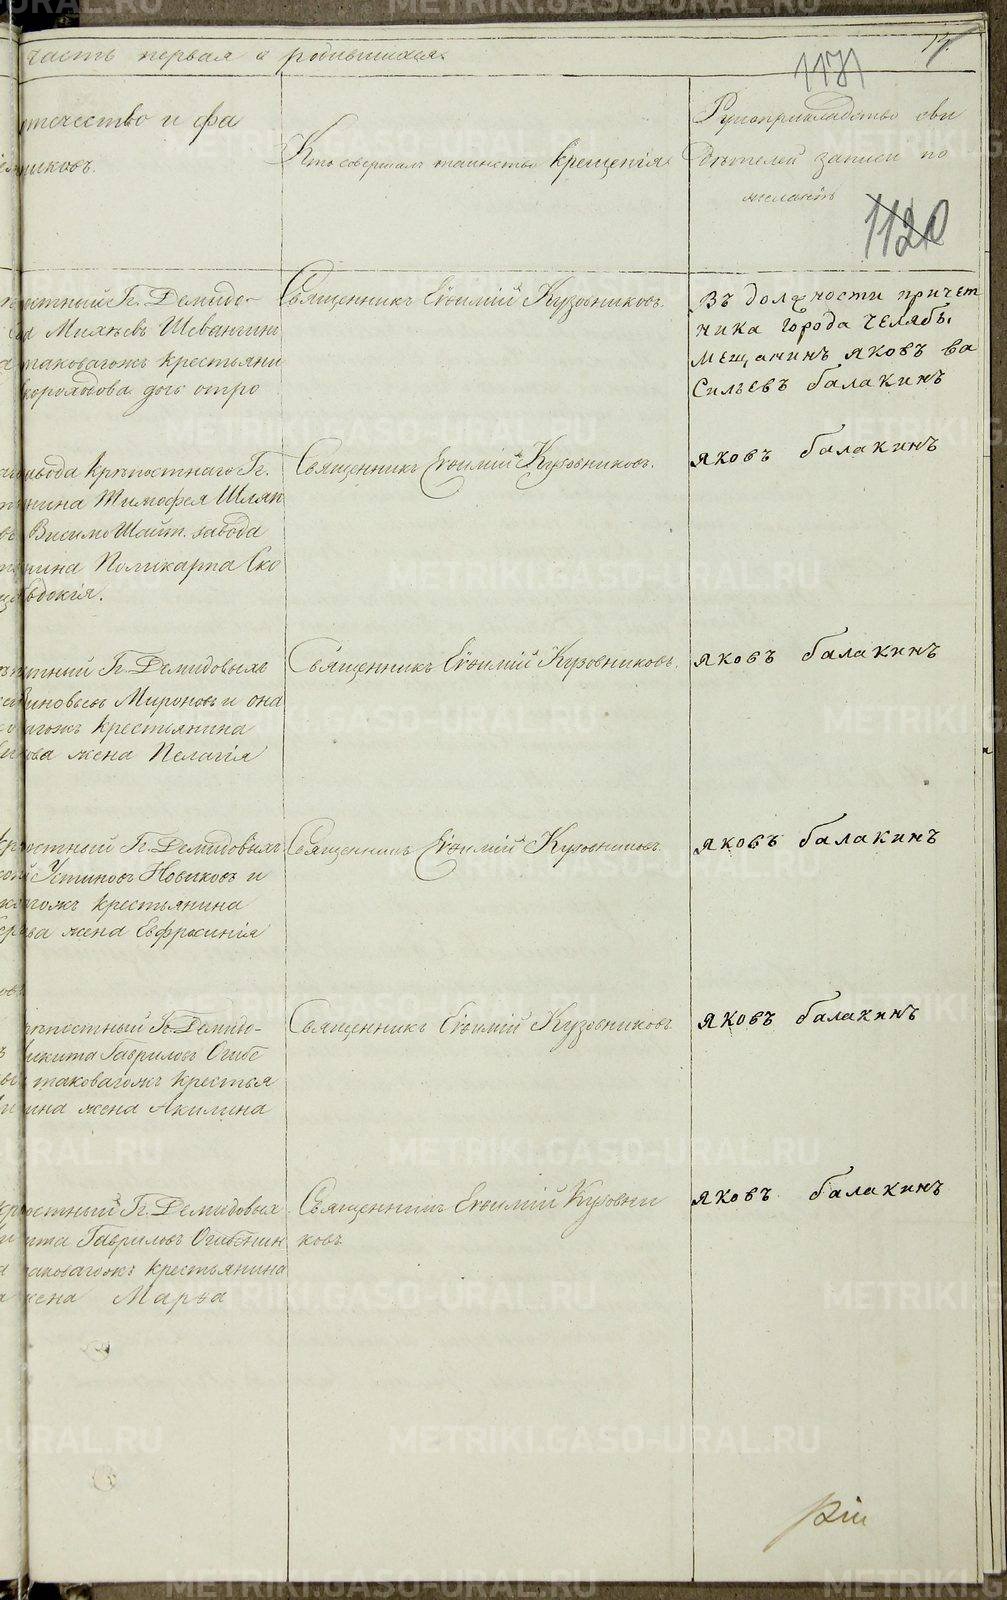 часть первая о родившихся.
1171
17.
отчество и фа
никовъ.
Кто совершалъ таинство крещенія
Рукоприкладство сви
дѣтелей записи по
желанію
1120
постный Гг. Демидо-
Михѣевъ Шевангинъ
таковагожъ крестьяни
дочь
Священникъ Евѳимій Кузовниковъ.
Въ должности причет
ника города Челябъ.
мещанинъ яковъ ва
Сильевъ балакинъ
завода крѣпостнаго Гг.
нина Тимофея Шляп
Висимо Шайт. завода
нина Поликарпа Ско
Евдокія.
Священникъ Евѳимій Кузовниковъ.
яковъ балакинъ
стный Гг. Демидовыхъ
Мироновъ и она
агожъ крестьянина
кова жена Пелагія
Священникъ Евѳимій Кузовниковъ.
яковъ балакинъ
постный Гг. Демидовыхъ
Устиновъ Новиковъ и
вагожъ крестьянина
ва жена Евфросинія
Священникъ Евѳимій Кузовниковъ
яковъ балакинъ
крѣпостный Гг. Демидо-
Никита Гавриловъ Огибе
таковагожъ крестья
нина жена Акилина
Священникъ Евѳимій Кузовниковъ
яковъ балакинъ
постный Гг. Демидовыхъ
кита Гавриловъ Огибенин
таковагожъ крестьянина
жена Марѳа
Священникъ Евѳимій Кузовни
ковъ
яковъ балакинъ
METRIKI.GASO-URAL.RU